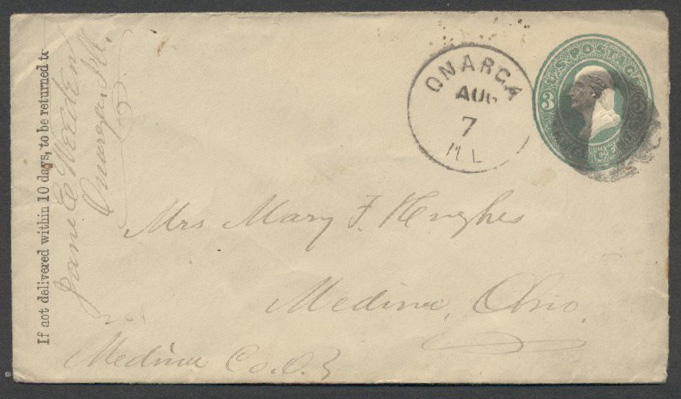 If not delivered within 10 days, to be returned to
Jane E Weeden
Onarga, Ill.
ONARGA
AUG
7
ILL
U.S. POSTAGE
3
Mrs Mary F. Hughes
Medina, Ohio.
Medina Co. O.